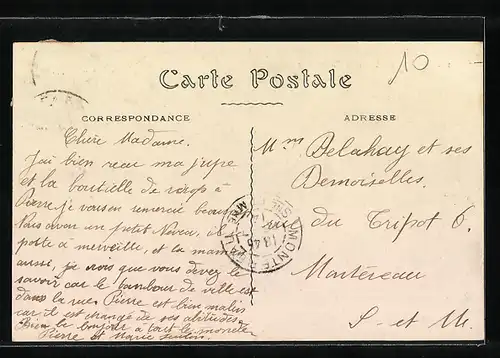 10
Carte Postale
CORRESPONDANCE
ADRESSE
Chère Madame.
J'ai bien recu ma jupe
et la bouteille de à
Pierre je vous en remercie beaucoup
Vous avez un petit Neveu, il
poste à merveille, et la maman
aussi, je crois que vous devez le
savoir car le tambour de ville est
dans la rue. Pierre est bien malin
car il est chargé de ses
Bien le bonjour à tout le monde
Pierre et Marie
Mme Delahay et ses
Demoiselles.
rue du Tripot 6.
Montereau
S. et M.